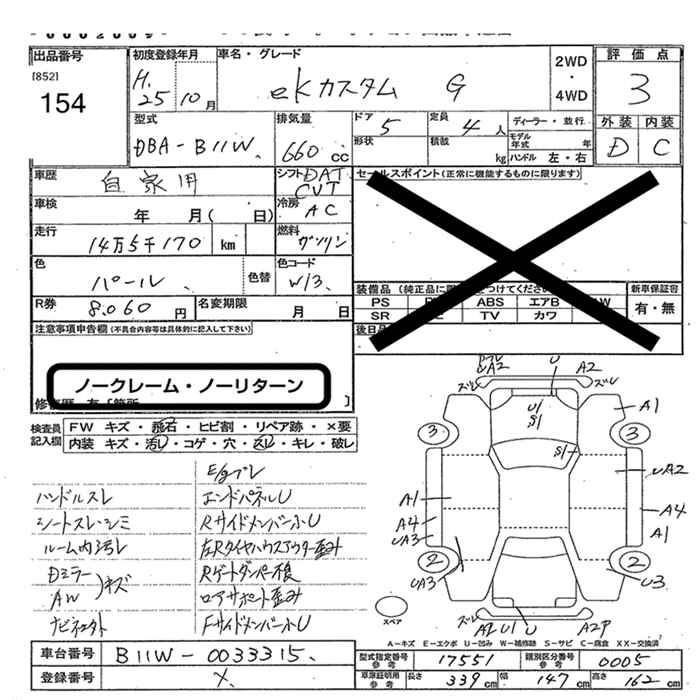 出品番号
[852]
154
初度登録年月
H.
25 10月
車名・グレード
eKカスタム G
2WD
・
4WD
評価点
3
外装 内装
D C
型式
DBA-B11W
排気量
660 cc
ドア
5
形状
定員
4人
積載
kg
ディーラー・並行
モデル年式 年
ハンドル 左・右
車歴
自家用
シフト DAT
CVT
車検
年 月( 日)
冷房
AC
走行
14万5千170 km
燃料
ガソリン
色
パール
色替
色コード
W13
R券
8.060 円
名変期限
月 日
セールスポイント(正常に機能するものに限ります)
装備品
PS ABS エアB
SR TV カワ
後日品
新車保証書
有・無
注意事項申告欄(不具合内容等は具体的に記入して下さい)
ノークレーム・ノーリターン
検査員記入欄
FW キズ・飛石・ヒビ割・リペア跡・×要
内装 キズ・汚レ・コゲ・穴・スレ・キレ・破レ
ハンドルスレ
シートスレ・シミ
ルーム内汚レ
Dミラー
AW
キズ
E/gブレ
エンドパネルU
RサイドメンバーホU
左Rタイヤハウスアウター歪み
Rゲートダンパー不良
ロアサポート歪み
FサイドメンバーホU
ズレ
A2
U
A2
ズレ
U1
S1
S1
A1
3
3
UA2
A1
A4
UA3
A4
A1
2
2
UA3
U3
ズレ
U1
U
A2P
スペア
A-キズ E-エクボ U-凹み W-補修跡 S-サビ C-腐食 XX-交換済
車台番号
B11W-0033315
登録番号
型式指定番号
参考
17551
類別区分番号
参考
0005
車庫証明用
参考
長さ 339 cm 幅 147 cm 高さ 162 cm